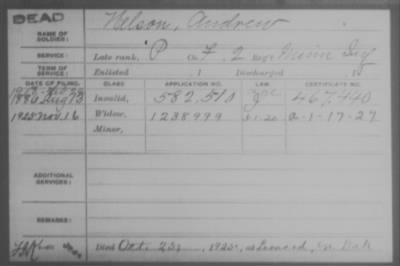 DEAD
NAME OF SOLDIER: Nelson, Andrew
SERVICE: Late rank, P Co. F, 2 Reg't Minn Inf
TERM OF SERVICE: Enlisted , 1 Discharged , 1
DATE OF FILING. CLASS. APPLICATION NO. LAW. CERTIFICATE NO.
1886 Aug 13 Invalid, 582,510 467,440
1925 Nov. 16 Widow, 1238999 5-1-20 a-1-17-27
Minor,
ADDITIONAL SERVICES:
REMARKS:
Died Oct. 23, 1925, at Leonard, N. Dak